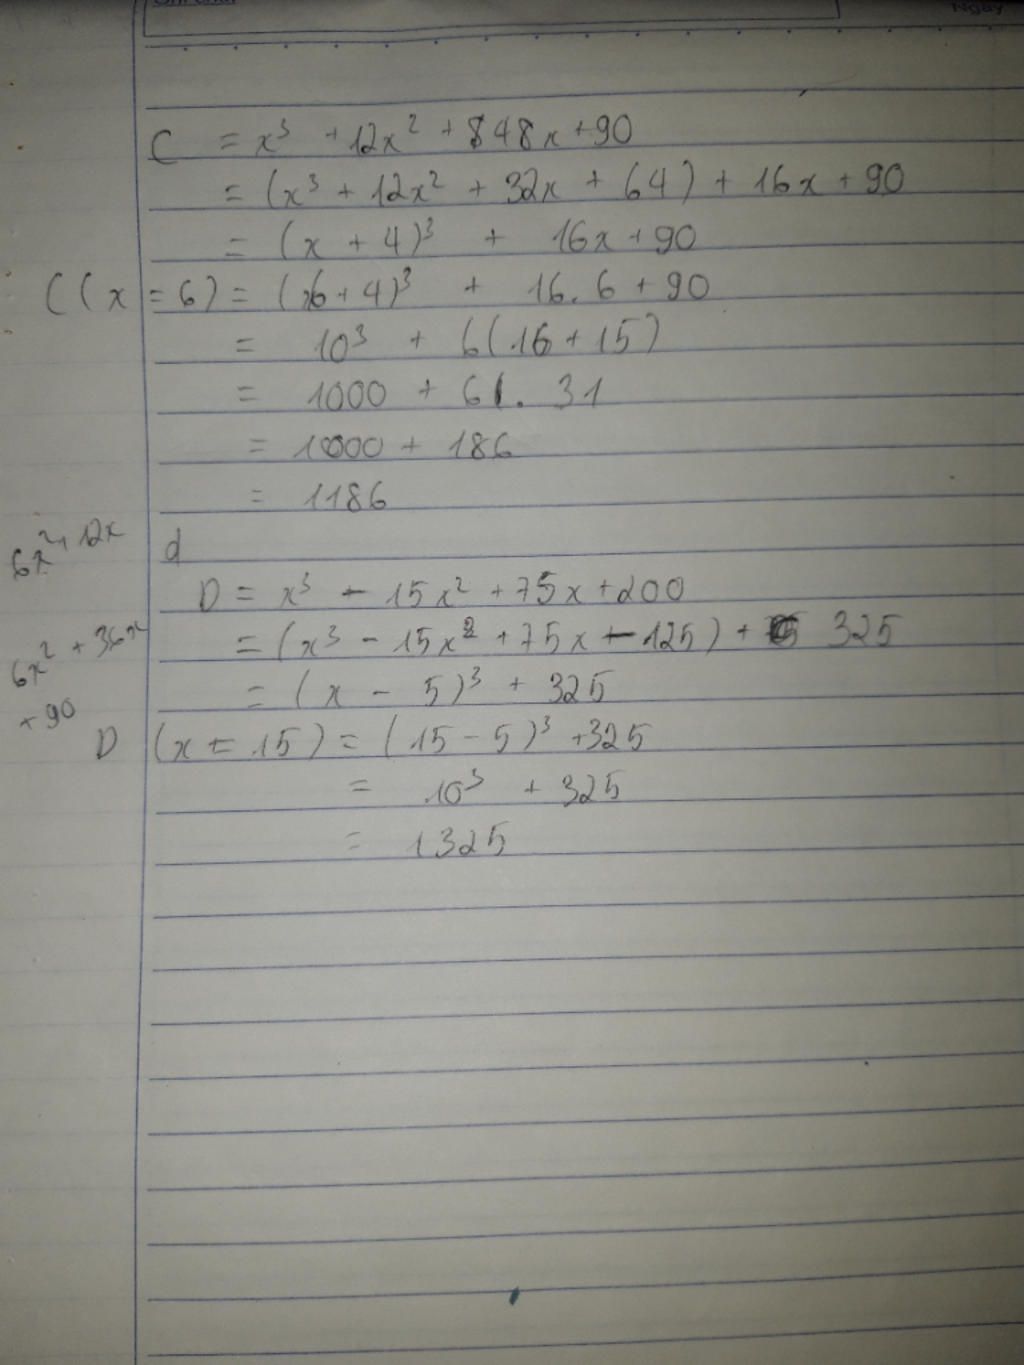 Ngày
C = x³ + 12x² + 848x + 90
= (x³ + 12x² + 32x + 64) + 16x + 90
= (x + 4)³ + 16x + 90
C (x = 6) = (6 + 4)³ + 16.6 + 90
= 10³ + 6(16 + 15)
= 1000 + 6. 31
= 1000 + 186
= 1186
6x² + 12x
d
D = x³ - 15x² + 75x + 200
6x² + 36x
= (x³ - 15x² + 75x - 125) + 325
= (x - 5)³ + 325
+ 90
D (x = 15) = (15 - 5)³ + 325
= 10³ + 325
= 1325